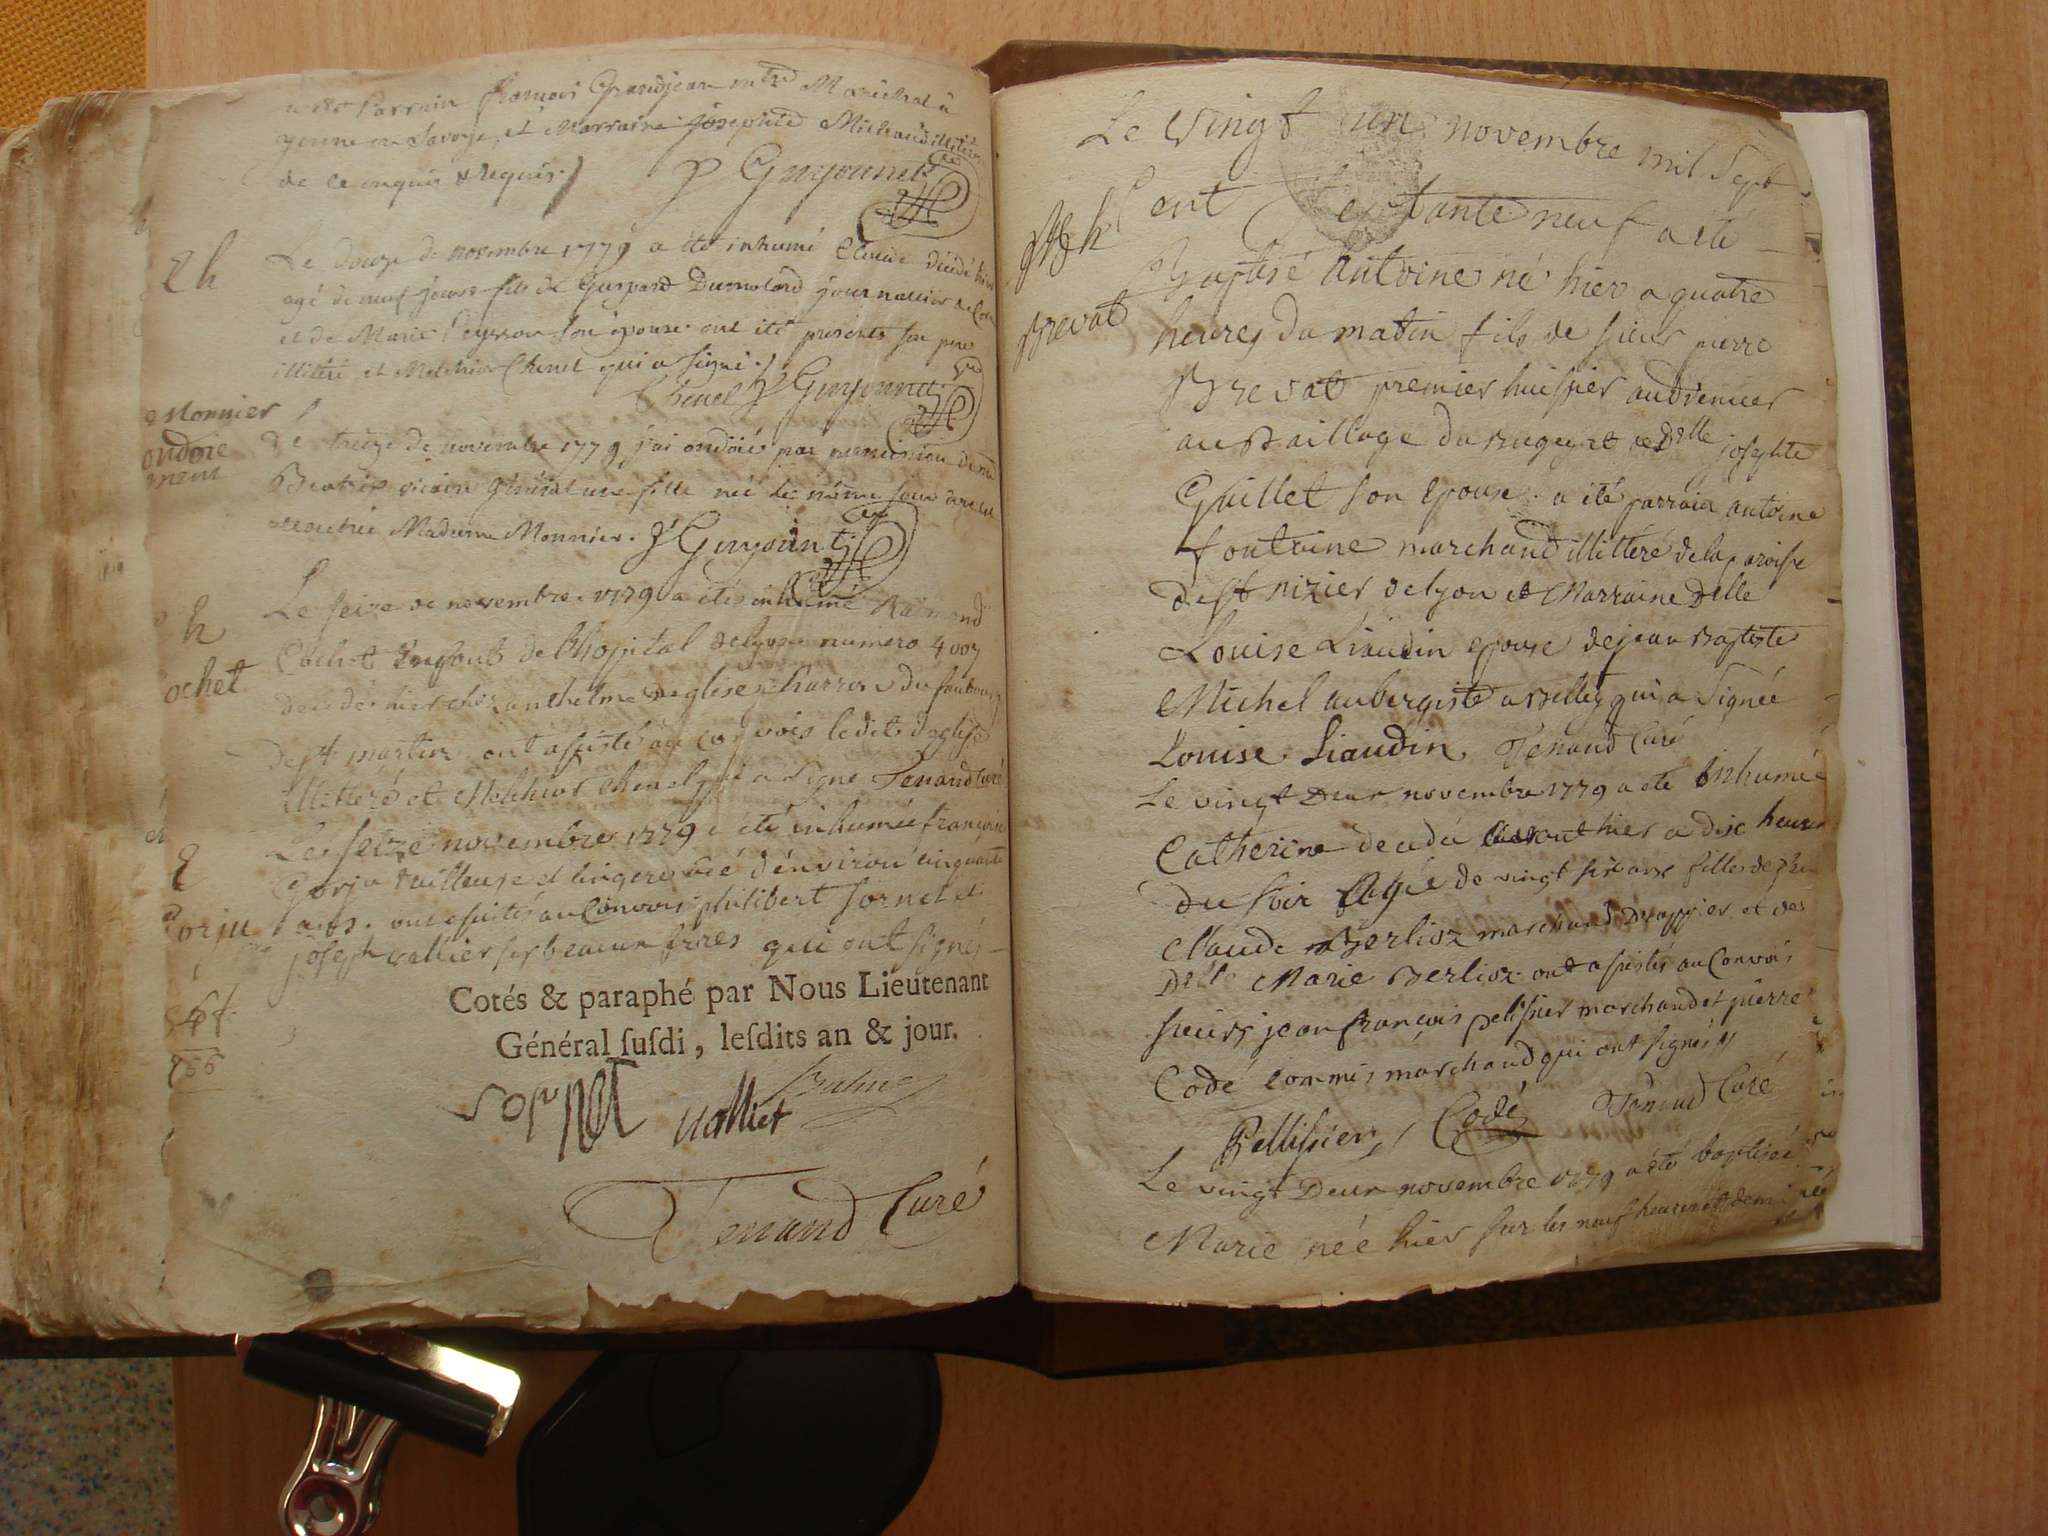 a été Parrain françois Grandjean mtre Maréchal à
yenne en Savoye, et Marraine Josephte Michaud illitérés
de ce enquis & Requis. P Guyonnet
h
Le douze de novembre 1779 a été inhumé Claude décédé hier
agé de neuf jours fils de Gaspard Dumolard journallier
et de Marie Peysson son épouse. ont été présents son pere
illitéré, et Melchior Chenel qui a signé.
Chenel P Guyonnet
Monnier
ondoie
ment
Le treize de novembre 1779 j'ai ondoié par permission de mr
Beatrix vicaire général une fille née le même jour dont est
accouchée Madame Monnier. P Guyonnet
h
ochet
Le seize de novembre 1779 a étés inhumé Raimond
Cochet Enfant de l'hopital de lyon numero 4007
decedé hier chez anthelme Deglise charron du faubourg
de st martin. ont assisté au convois ledit deglise
illitéré et Melchior Chenel qui a signé Tenand curé
orju
Le seize novembre 1779 a été inhumée françoise
Gorju tailleuse et lingere agé d'environ cinquante
ans. ont assistés au Convois philibert sornet et
joseph vallier ses beaux freres qui ont signés
Cotés & paraphé par Nous Lieutenant
Général ſuſdi, leſdits an & jour.
sornet valliet
Tenand Curé
Le Vingt un novembre mil Sept
Cent Septante neuf a été
Baptisé Antoine né hier a quatre
Brevat
heures du matin fils de sieur pierre
Brevat premier huissier audiencier
au Baillage du Bugey et de Delle josephte
Guillet son epouse. a été parrain antoine
fontaine marchand illittéré de la paroisse
de St nizier de lyon et Marraine Delle
Louise Liaudin epouse de jean Baptiste
Michel aubergiste a Belley qui a Signée
Louise Liaudin Tenand Curé
Le vingt Deux novembre 1779 a été inhumée
Catherine decedé avant hier a dix heures
du soir Agée de vingt six ans filles de
Claude Berlioz marchand Drappier et de
Delle Marie Berlioz. ont assistés au Convois
sieurs jean françois pelissier marchand et pierre
Codé Commis marchand qui ont signés
Pellissier Codé Tenand Curé
Le vingt Deux novembre 1779 a été baptisée
Marie née hier sur les neuf heures et demi